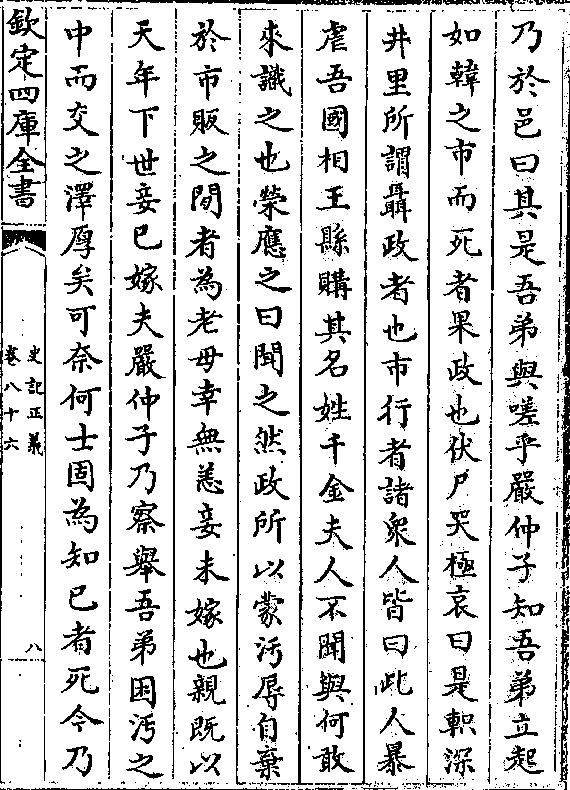 乃於邑曰其是吾弟與嗟乎嚴仲子知吾弟立起
如韓之市而死者果政也伏尸哭極哀曰是軹深
井里所謂聶政者也市行者諸衆人皆曰此人暴
虐吾國相王縣購其名姓千金夫人不聞與何敢
來識之也榮應之曰聞之然政所以蒙汚辱自棄
於市販之間者為老母幸無恙妾未嫁也親既以
天年下世妾已嫁夫嚴仲子乃察舉吾弟困汚之
中而交之澤厚矣可奈何士固為知已者死今乃
欽定四庫全書
史記正義
卷八十六
八